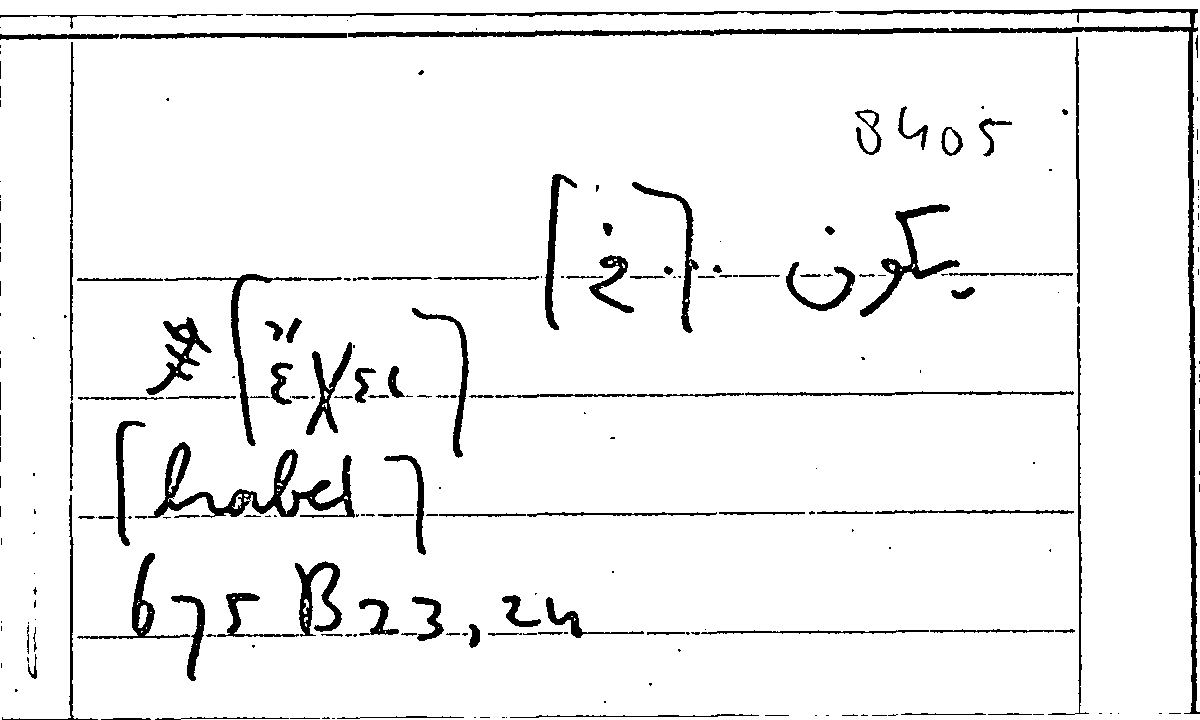 8405
يكون ... [في]
[ἔχει]
[habet]
675 B23, 24